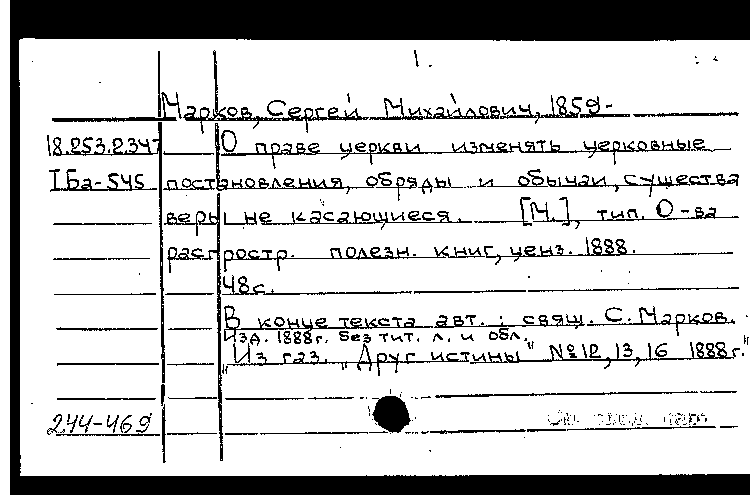 1.
Марков, Сергей Михайлович, 1859-
18.253.2.347 О праве церкви изменять церковные
I Ба-545 постановления, обряды и обычаи, существа
веры не касающиеся. [М.], тип. О-ва
распростр. полезн. книг, ценз. 1888.
48с.
В конце текста авт.: свящ. С. Марков.
Изд. 1888г. без тит. л. и обл.
"Из газ. "Друг истины" №12, 13, 16 1888г."
244-469